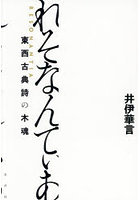 井伊華言
れぞなんてぃあ
RESONANTIA
東西古典詩の木魂